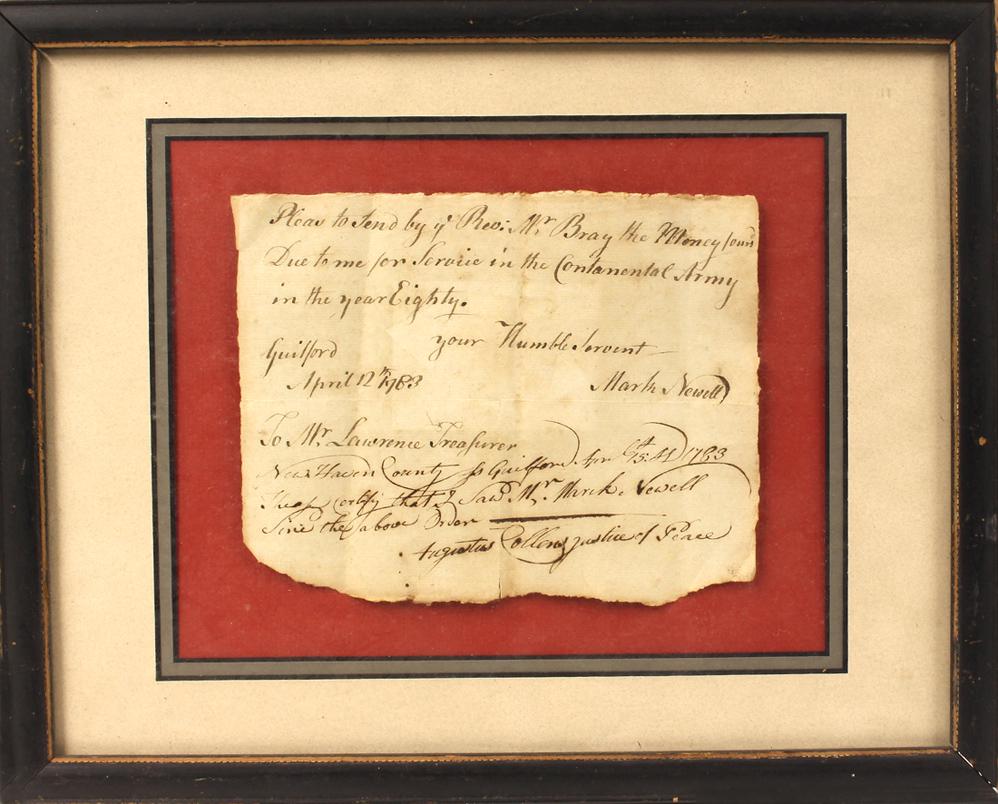 Pleas to Send by yᵉ Rev: Mr Bray the Money
Due to me for Service in the Contanental Army
in the year Eighty.
your Humble Servent
Guilford
April 12th 1783
Mark Newell
To Mr Lawrence Treasurer
New Haven County ss Guilford Apr 13th AD 1783
certify that I Saw Mr Mark Newell
Sine the above Order
Augustus Collens Justice of Peace